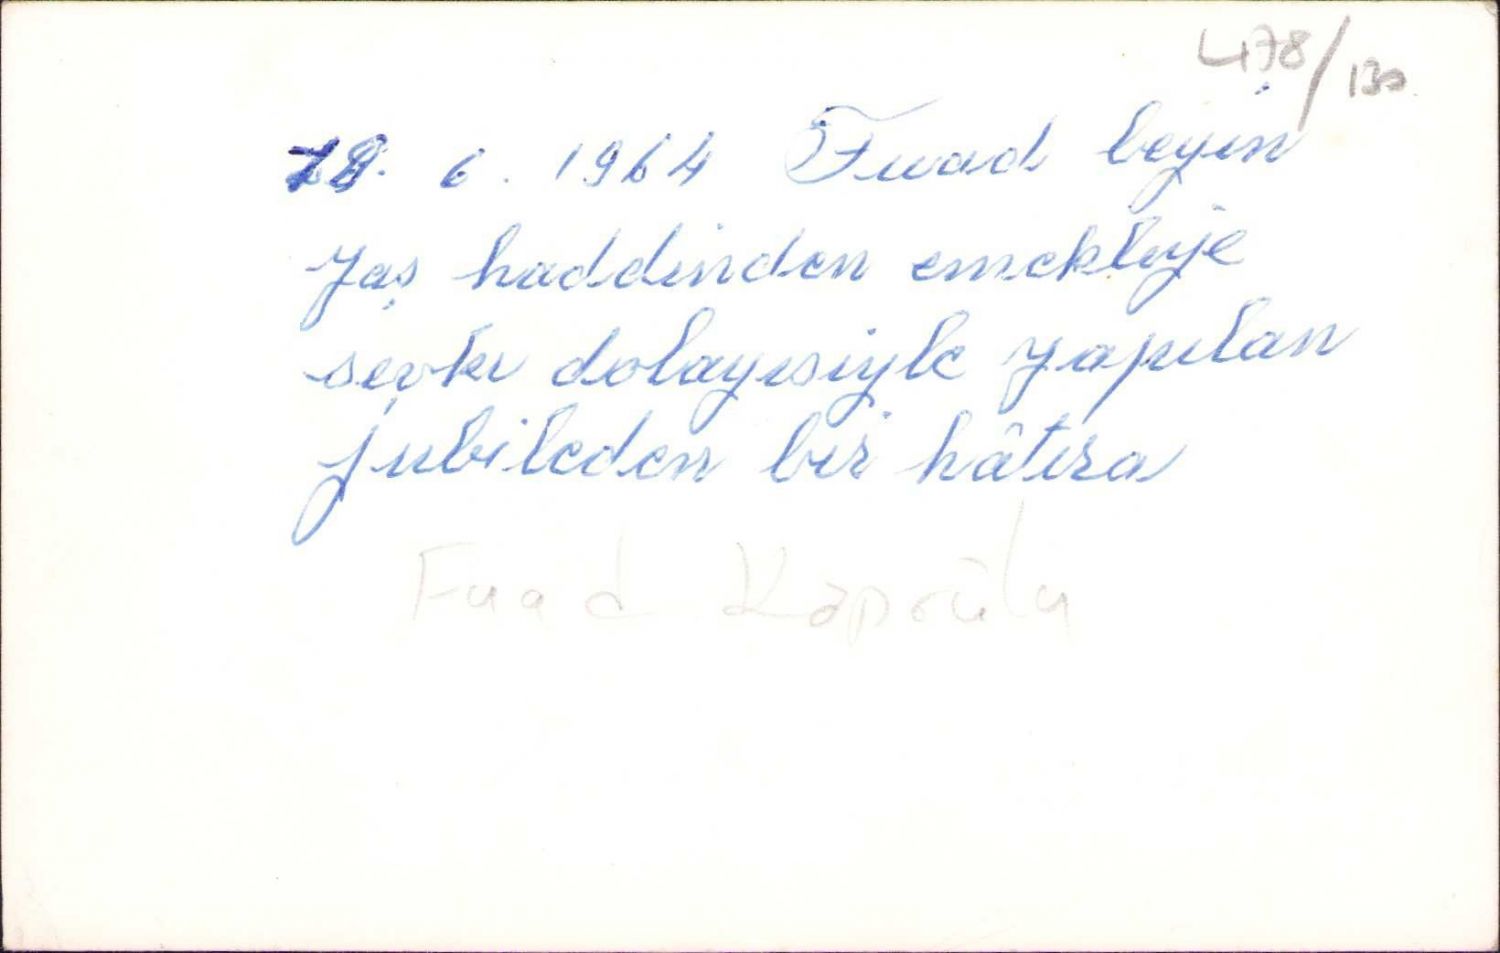 478/130
18. 6. 1964 Fuad beyin
yaş haddinden emekliye
sevki dolayısiyle yapılan
jubileden bir hâtıra
Fuad Köprülu